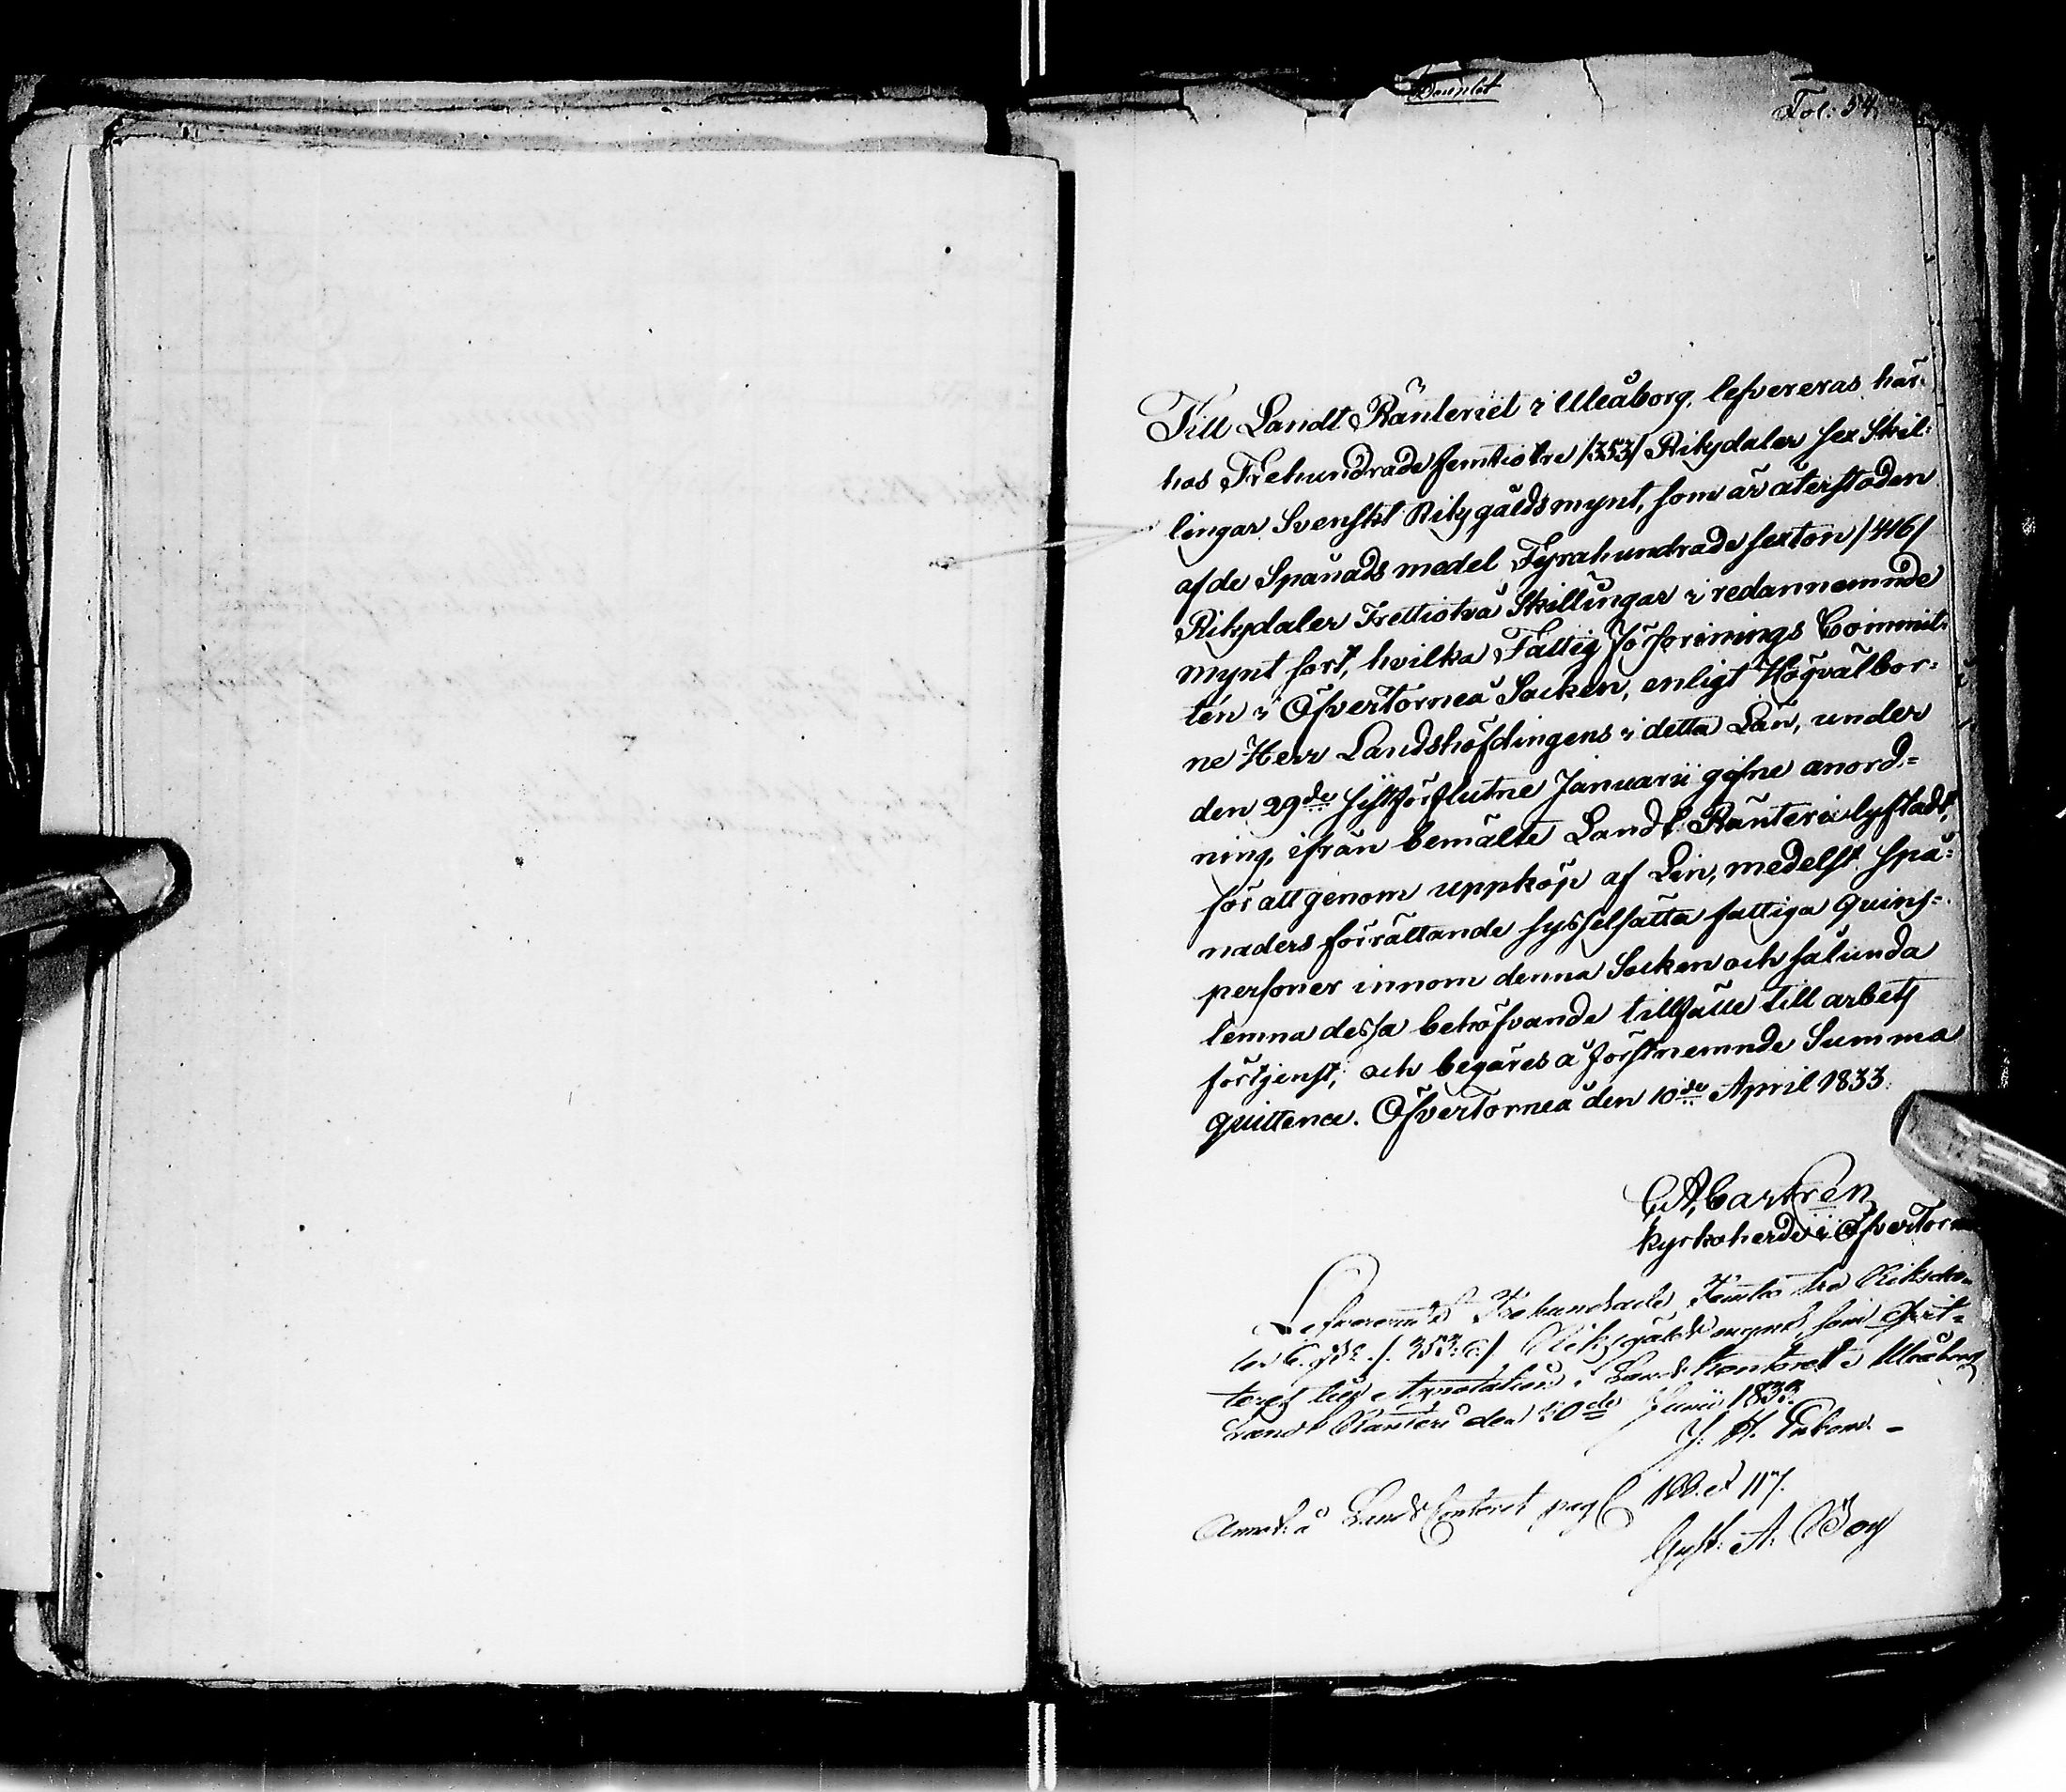 Douplet
Fol: 54.
Till Landt Ränteriet i Uleåborg, lefvereras här,
hos Trehundrade femtiotre /353/ Riksdaler sex Skil:
lingar Svenskt Riksgäldsmynt, som är återstoden
af de Spånads medel Fyrahundrade sexton /416/
Riksdaler Trettiotvå Skillingar i redannemnde
mynt sort, hvilka Fattig försörjnings Commit:
tén i ÖfverTorneå Socken, enligt Högvälbor:
ne Herr Landshöfdingens i detta Län, under
den 29de sistförflutne Januarii gifne anord=
ning, ifrån bemälte Landt Ränteri lyftadt,
för att genom uppköp af Lin, medelst spå:
naders förrättande sysselsätta fattiga quins=
personer innom denna Socken och sålunda
lemna dessa behöfvande tillfälle till arbets
förtjenst, och begäres å förstnemnde Summa
quittence. ÖfverTorneå den 10de April 1833.
C. A. Castrén
Kyrkoherde i ÖfverTorne
Lefvererat Trehundrade Femtio tre Riksda=
ler 6. /: 353:6:/ Riksgälds mynt, som qvit=
teras Annotation i Landt Kontoret i Uleåborgs
Landt Ränteri den 20de Junii 1833.
J. H.
Annot. å Landt Contoret pag 100. et 117.
Gust. A. Boy